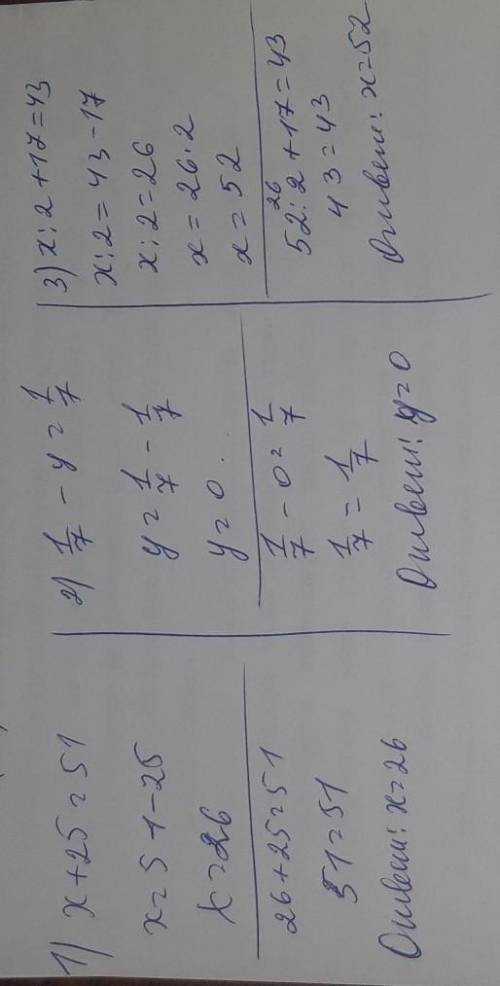 1) x+25=51
x=51-25
x=26
26+25=51
51=51
Ответ: x=26
2) 1/7 - y = 1/7
y = 1/7 - 1/7
y=0.
1/7 - 0 = 1/7
1/7 = 1/7
Ответ: y=0
3) x:2+17=43
x:2=43-17
x:2=26
x=26·2
x=52
26
52:2+17=43
43=43
Ответ: x=52